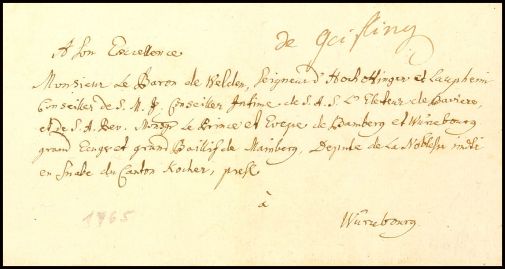 de Geisling
A Son Excellence
Monsieur Le Baron de Welden, Seigneur d'Hochaltinger et Laupheim
Conseiller de S. M. J. Conseiller Intime de S. A. S. L'Eleteur de Baviere,
et de S. A. Rev. Monsgr Le Prince et Eveque de Bamberg et Würzebourg
grand Ecuyer et grand Baillif de Mainberg, Depute de La Noblesse
en Suabe du Canton Kocher, prest
à
Würzebourg.
1765